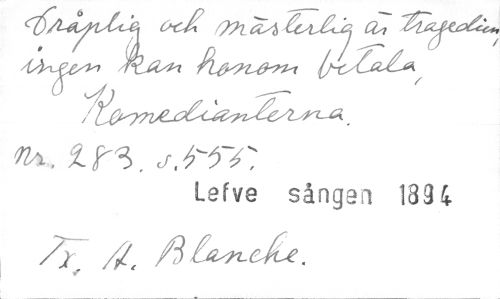 Dråplig och mästerlig är tragedien,
ingen kan honom betala,
Komedianterna.
Nr. 283. s.555.
Lefve sången 1894
Tx. A. Blanche.